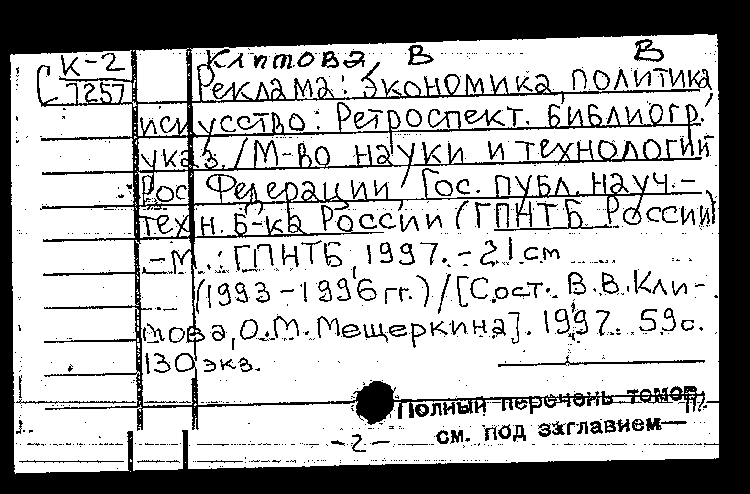 К-2 Климова, В В
7257 Реклама: экономика, политика,
искусство: Ретроспект. библиогр.
указ. / М-во науки и технологий
Рос. Федерации, Гос. публ. науч.-
техн. б-ка России (ГПНТБ России)
.-М.: ГПНТБ, 1997.-21 см
(1993-1996 гг.) / [Сост. В.В. Кли-
мова, О.М. Мещеркина]. 1997. 59 с.
130 экз.
Полный перечень томов
см. под заглавием
-2-